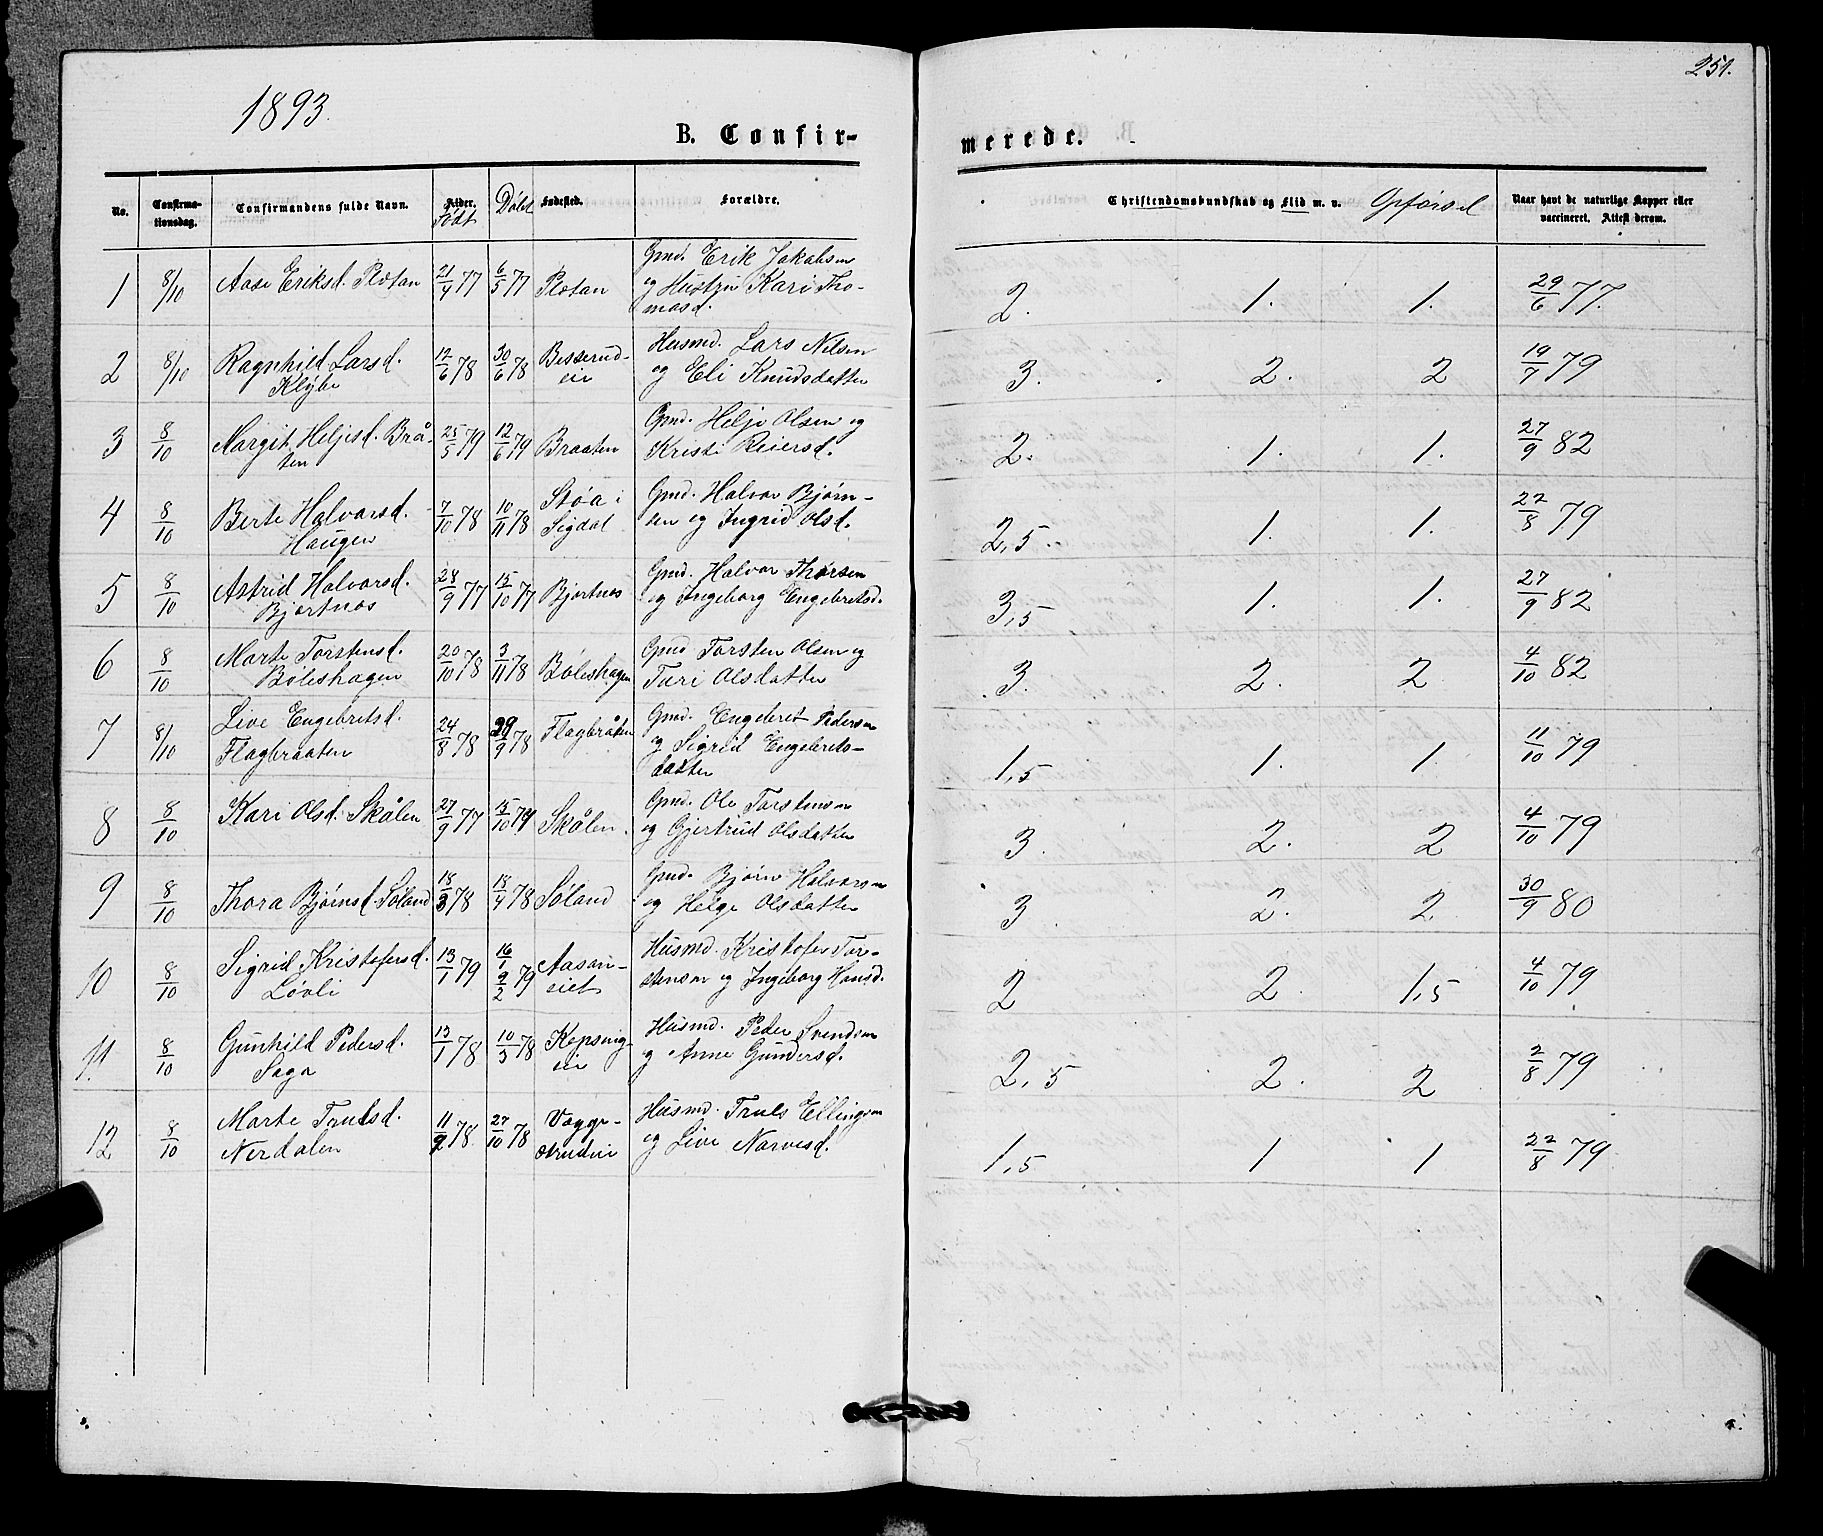 251.
1893.
B. Confir-
merede.
No. Confirma-tionsdag. Confirmandens fulde Navn. Alder. Født Døbt Fødested. Forældre. Christendomskundskab og Flid m. v. Opførsel Naar havt de naturlige Kopper eller vaccineret. Attest derom.
1 8/10 Aase Eriksd. Plotan 21/4 77 6/5 77 Plotan Gmd. Erik Jakobsen og Hustru Kari Tho-masd. 2. 1. 1. 29/6 77.
2 8/10 Ragnhild Larsd. Klybe 12/6 78 30/6 78 Besserud-eie Husmd. Lars Nilsen og Eli Knudsdatter 3. 2. 2 19/7 79
3 8/10 Margit Heljesd. Brå-ten 25/5 79 12/6 79 Braaten Gmd. Helje Olsen og Kristi Reiersd. 2. 1. 1. 27/9 82
4 8/10 Berte Halvorsd. Haugen 7/10 78 10/11 78 Støa i Sigdal Gmd. Halvor Bjørn-sen og Ingrid Olsd. 2,5 1. 1. 22/8 79
5 8/10 Astrid Halvorsd. Bjortnes 28/9 77 15/10 77 Bjortnes Gmd. Halvor Thorsen og Ingeborg Engebretsd. 3,5 1. 1. 27/9 82
6 8/10 Marte Torstensd. Bøleshagen 20/10 78 3/11 78 Bøleshagen Gmd Torsten Olsen og Turi Olsdatter 3. 2. 2 4/10 82
7 8/10 Live Engebretsd. Flagbraaten 24/8 78 29/9 78 Flagbråten Gmd. Engebret Pedersen og Sigrid Engebrets-datter 1,5 1. 1. 11/10 79
8 8/10 Kari Olsd. Skålen 27/9 77 15/10 79 Skålen. Gmd. Ole Torstensen og Gjertrud Olsdatter 3. 2. 2 4/10 79
9 8/10 Thora Bjørnsd. Søland 18/3 78 18/4 78 Søland Gmd. Bjørn Halvorsen og Helge Olsdatter 3. 2. 2. 30/9 80
10 8/10 Sigrid Kristofersd. Løvli 13/1 79 16/1 9/2 79 Aasan-eiet Husmd. Kristofer Tor-stensen og Ingeborg Hansd. 2 2. 1,5 4/10 79
11. 8/10 Gunhild Pedersd. Saga 13/1 78 10/3 78 Kopseng-eie Husmd. Peder Svendsen og Anne Gundersd. 2,5 2. 2 2/8 79
12 8/10 Marte Trulsd. Nerdalen 11/9 78. 27/10 78 Vogge-strudeie Husmd. Truls Ellingsen og Live Narvesd. 1,5 1 1 22/8 79